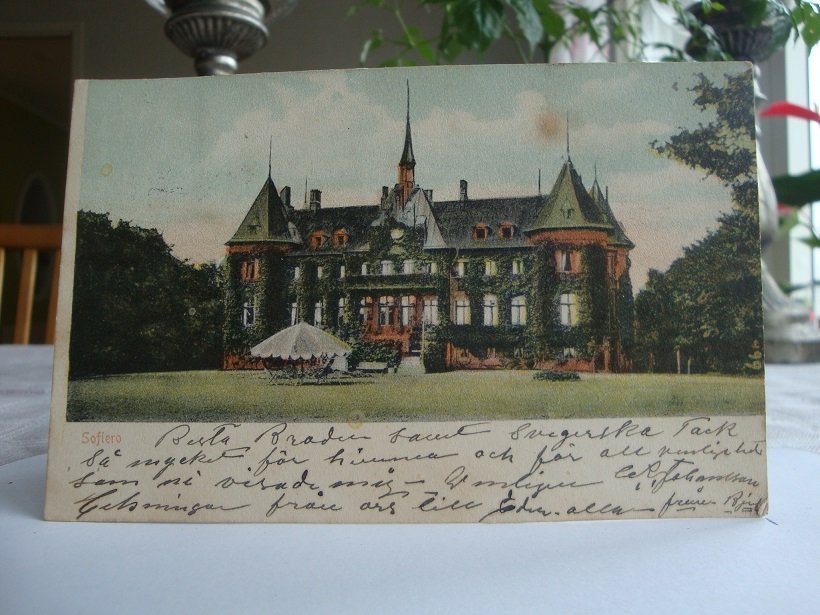 Sofiero
Bästa Broder samt Svägerska Tack
så mycket för och för all vänlighet
som ni visade mig – Vänligen C. R. Johansson
Helsningar från oss till Eder alla från